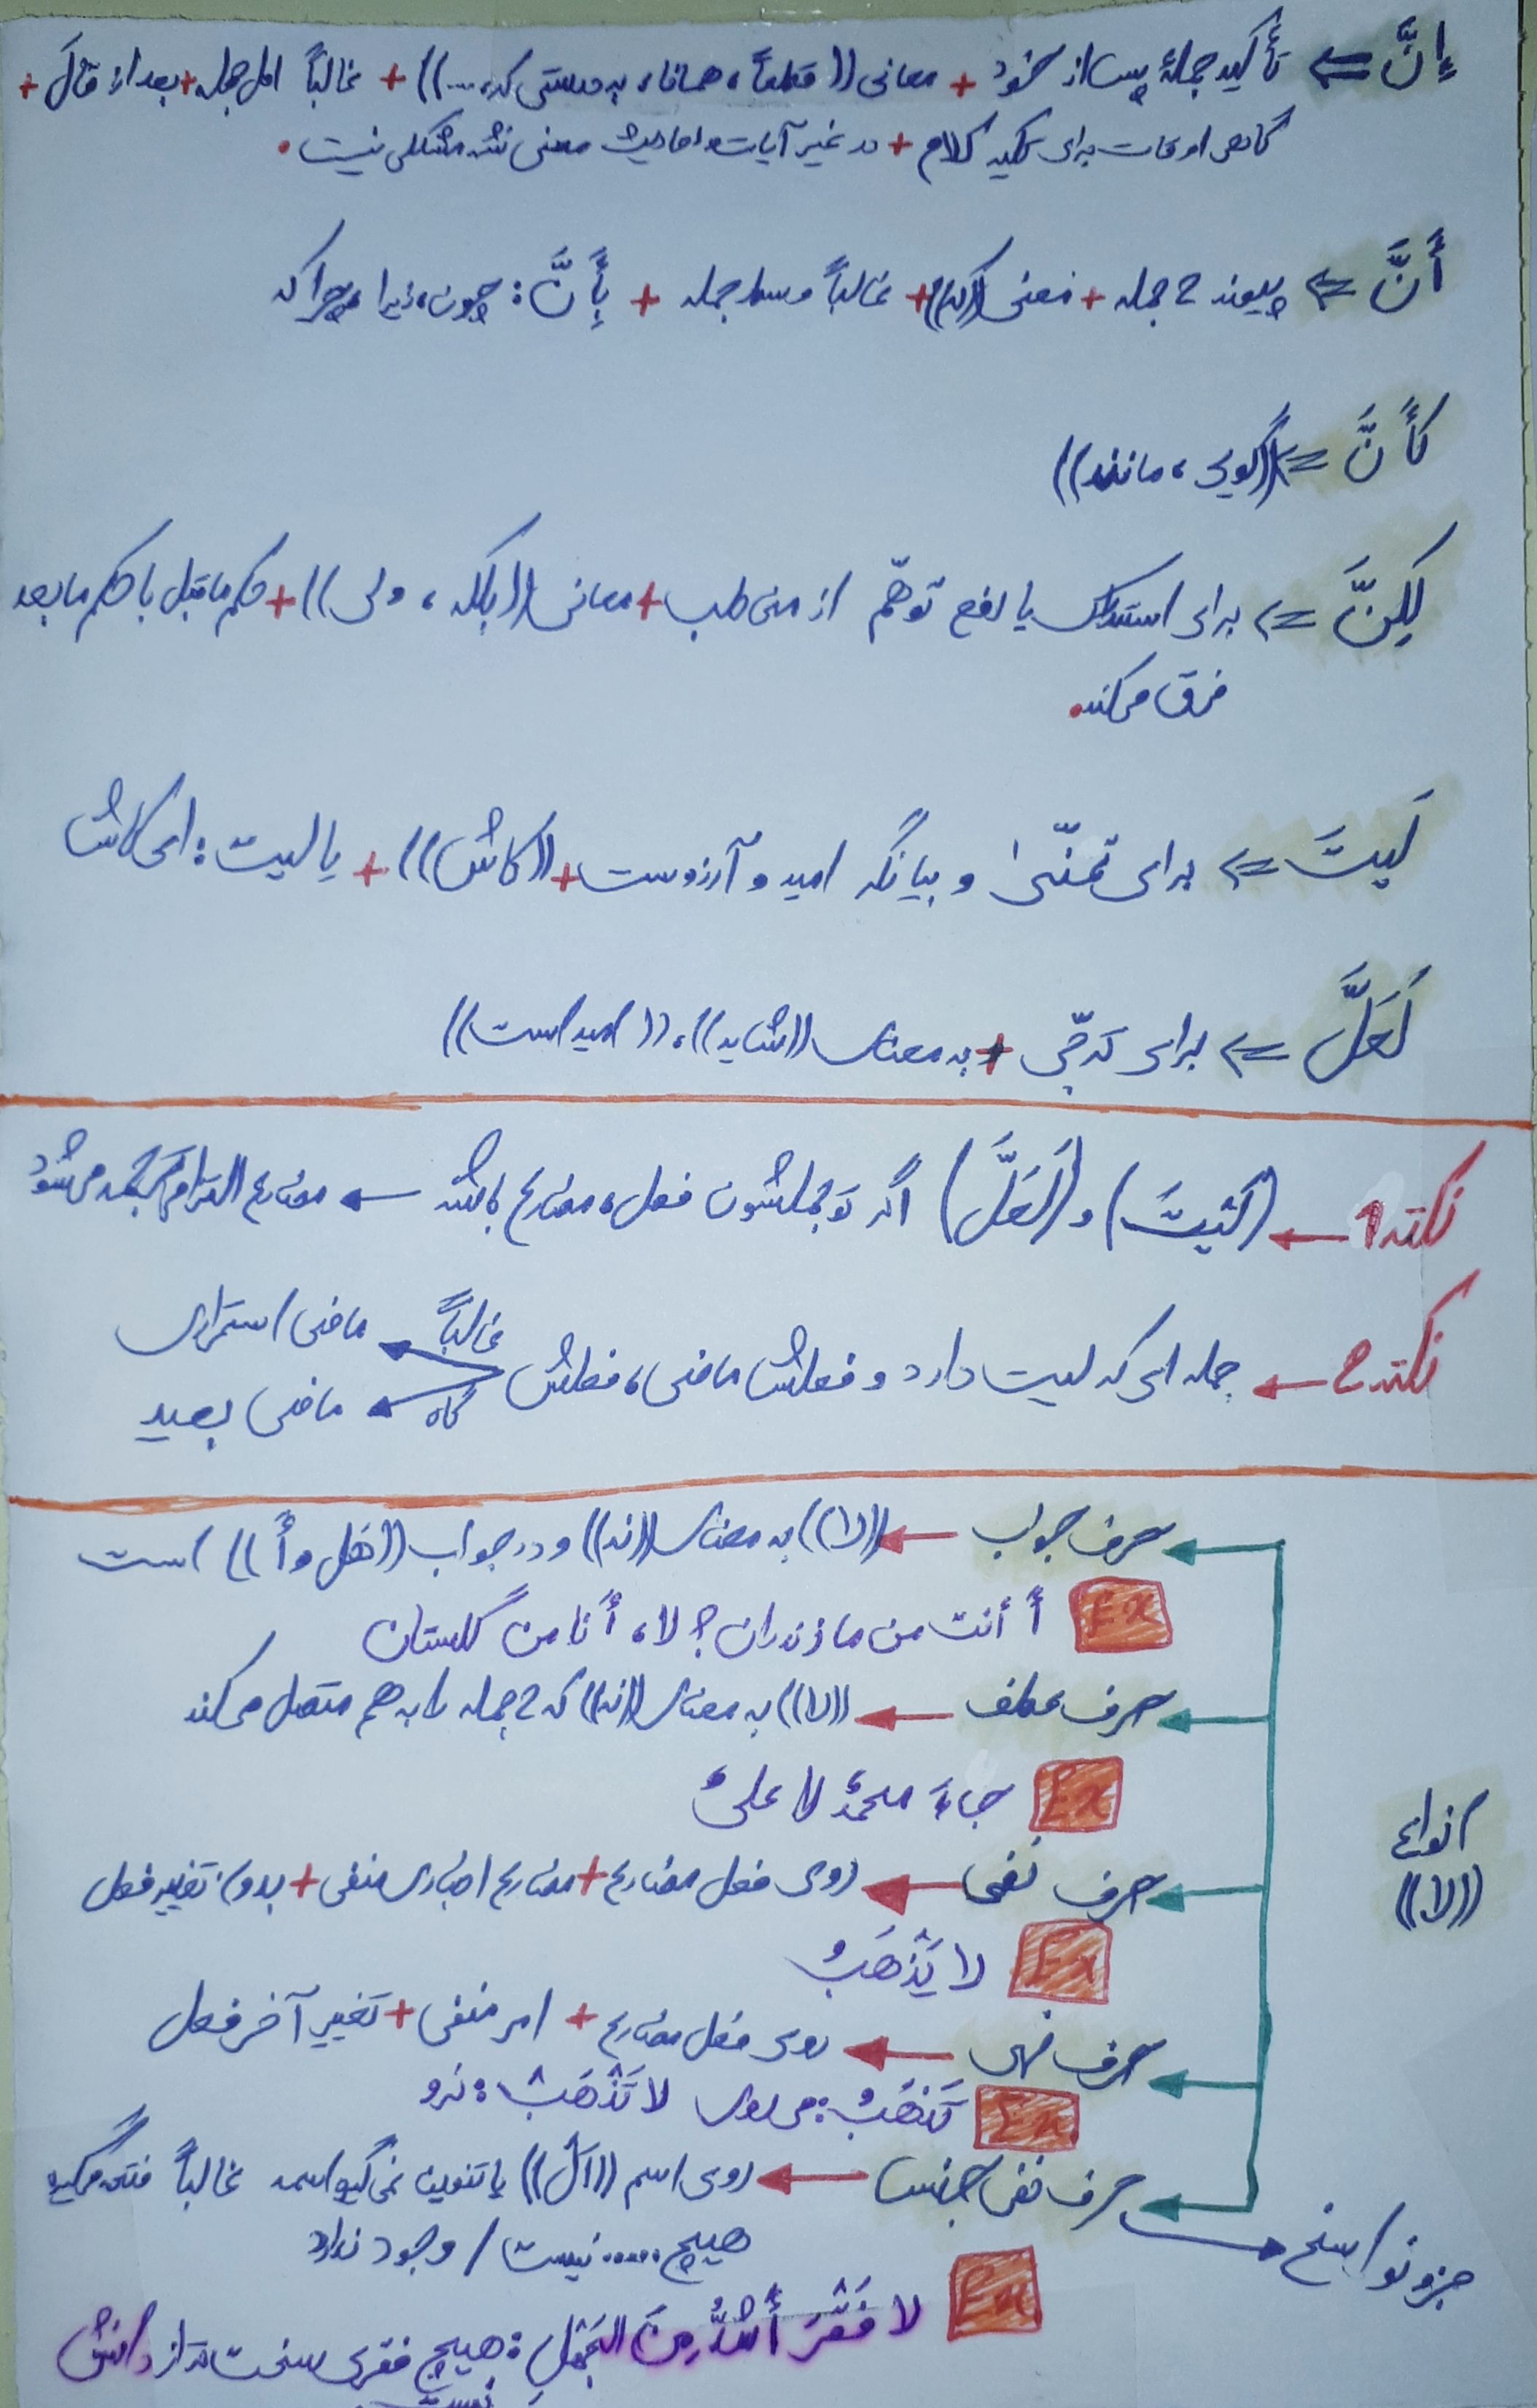 إِنَّ ⇐ تأکید جملهٔ پس از خود + معانی ((قطعاً، همانا، به درستی که، ....)) + غالباً اول جمله + بعد از قالَ +
گاهی اوقات برای تکیه کلام + در غیر آیات و احادیث معنی نشه مشکلی نیست.
أَنَّ ⇐ پیوند ۲ جمله + معنی ((که)) + غالباً وسط جمله + بِأَنَّ: چون، زیرا، چراکه
کَأَنَّ ⇐ ((گویی، مانند))
لکِنَّ ⇐ برای استدراک یا رفع توهّم از مطلب + معانی ((بلکه، ولی)) + حکم ماقبل با حکم مابعد
فرق می‌کند.
لَیتَ ⇐ برای تمنّی و بیانگر امید و آرزوست + ((کاش)) + یا لیت: ای کاش
لَعَلَّ ⇐ برای ترجّی + به معنای ((شاید))، ((امید است))
نکته ۱ ← (لَیتَ) و (لَعَلَّ) اگه تو جملشون فعل، مضارع باشه ← مضارع التزامی ترجمه می‌شود
نکته ۲ ← جمله ای که لیت دارد و فعلش ماضی، فعلش غالباً ← ماضی استمراری
گاه ← ماضی بعید
انواع ((لا))
حرف جواب ← ((لا)) به معنای ((نه)) و در جواب ((هَل و أَ)) است
Ex أ أنت من مازندران؟ لا، أنا من گلستان
حرف عطف ← ((لا)) به معنای ((نه)) که ۲ جمله را به هم متصل می‌کند
Ex جاءَ محمدٌ لا علیٌ
حرف نفی ← روی فعل مضارع + مضارع اخباری منفی + بدون تغییر فعل
Ex لا یَذْهَبُ
حرف نهی ← روی فعل مضارع + امر منفی + تغییر آخر فعل
Ex تَذهَبُ: می روی لا تَذْهَبْ: نرو
حرف نفی جنس ← روی اسم ((اَل)) یا تنوین نمی‌گیرد اسمه غالباً فتحه می‌گیره
جزو نواسخ
هیچ ..... نیست / وجود ندارد
Ex لا فَقْرَ أَشَدُّ مِنَ الجَهْلِ: هیچ فقری سخت تر از دانش
نیست